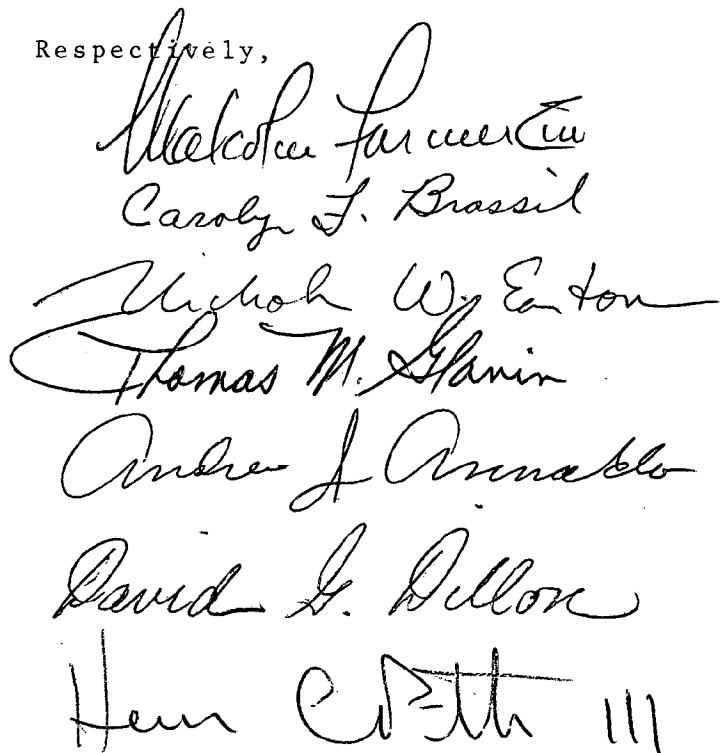 Respectively,
Malcolm Farmer III
Carolyn F. Brassil
Nicholas W. Easton
Thomas M. Glavin
Andrew J. Annaldo
David G. Dillon
III